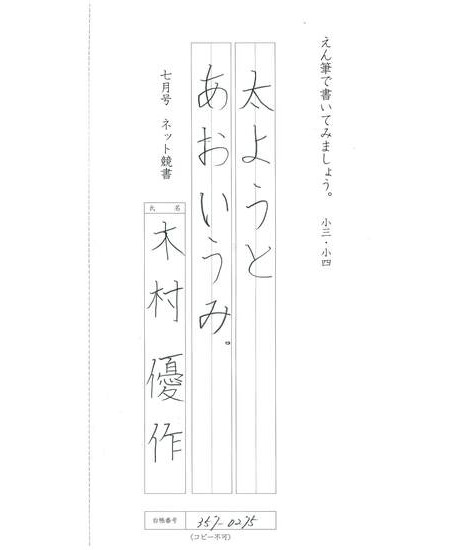 えん筆で書いてみましょう。 小三・小四
太ようと
あおいうみ。
七月号 ネット競書
氏 名
木村優作
台帳番号 357-0275
(コピー不可)